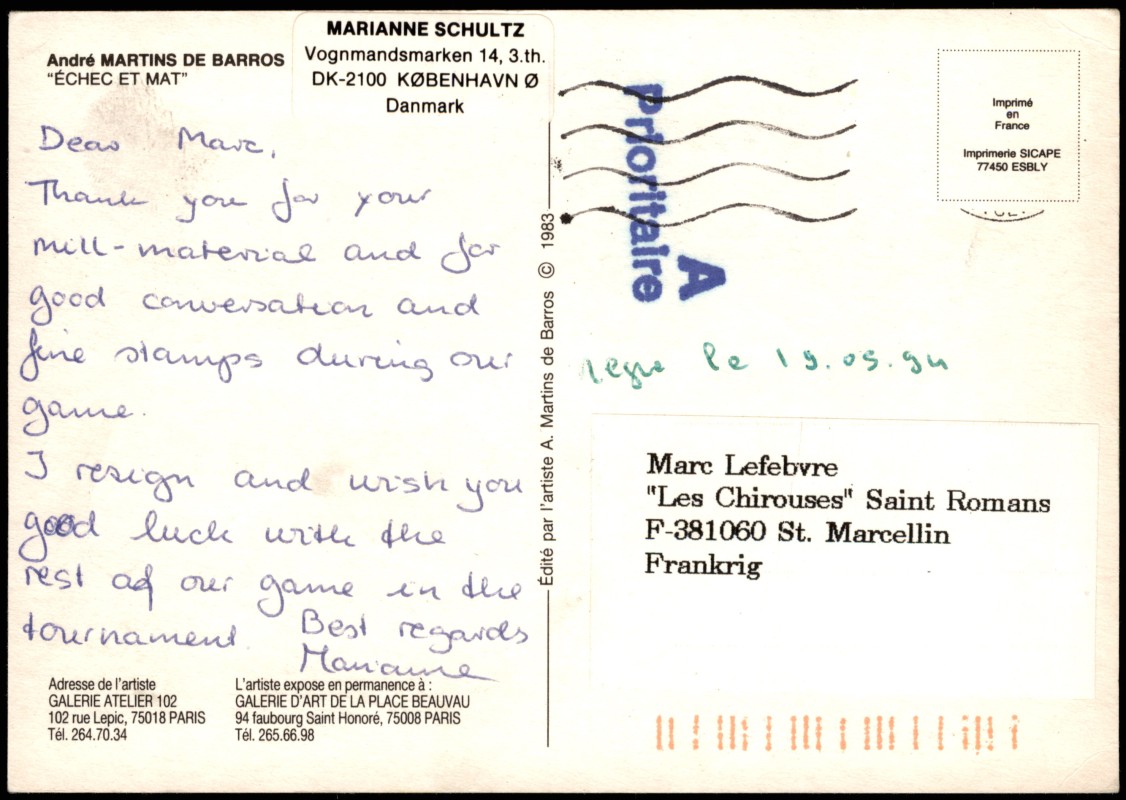 André MARTINS DE BARROS
"ÉCHEC ET MAT"
MARIANNE SCHULTZ
Vognmandsmarken 14, 3.th.
DK-2100 KØBENHAVN Ø
Danmark
Dear Marc,
Thank you for your
mill-material and for
good conversation and
fine stamps during our
game.
I resign and wish you
good luck with the
rest of our game in the
tournament.
Best regards
Marianne
Adresse de l'artiste
GALERIE ATELIER 102
102 rue Lepic, 75018 PARIS
Tél. 264.70.34
L'artiste expose en permanence à :
GALERIE D'ART DE LA PLACE BEAUVAU
94 faubourg Saint Honoré, 75008 PARIS
Tél. 265.66.98
Édité par l'artiste A. Martins de Barros © 1983
Prioritaire
A
Imprimé
en
France
Imprimerie SICAPE
77450 ESBLY
le 19.05.94
Marc Lefebvre
"Les Chirouses" Saint Romans
F-381060 St. Marcellin
Frankrig